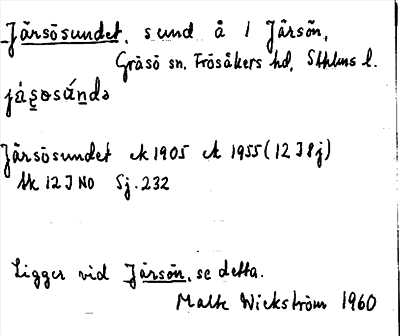 Järsösundet, sund å / Järsön,
Gräsö sn, Frösåkers hd, Sthlms l.
Järsösundet ek 1905 ek 1955 (12 I 8j)
tk 12 I NO Sj. 232
Ligger vid Järsön, se detta.
Malte Wickström 1960